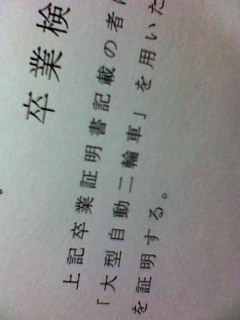 卒業検
上記卒業証明書記載の者
「大型自動二輪車」を用いた
を証明する。